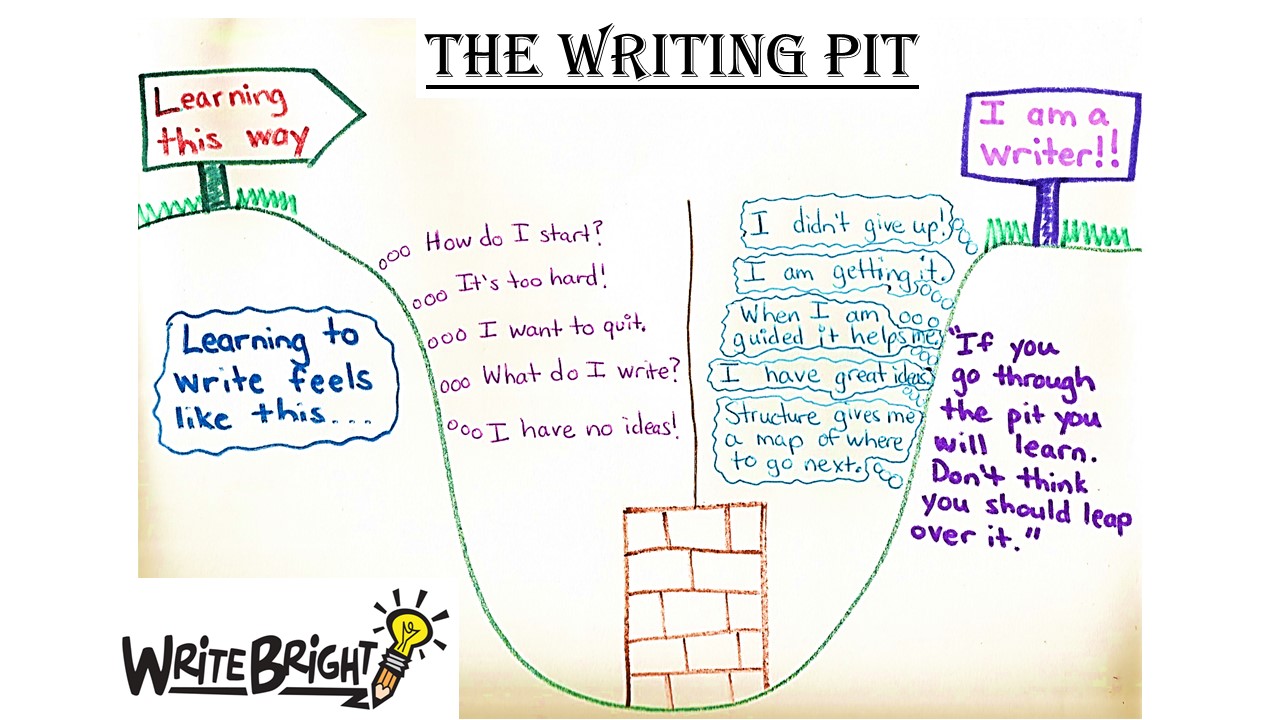 THE WRITING PIT
Learning
this way
I am a
writer!!
How do I start?
It's too hard!
I want to quit.
What do I write?
I have no ideas!
Learning to
write feels
like this....
I didn't give up!
I am getting it.
When I am
guided it helps me.
I have great ideas.
Structure gives me
a map of where
to go next.
"If you
go through
the pit you
will learn.
Don't think
you should leap
over it."
WRITEBRIGHT